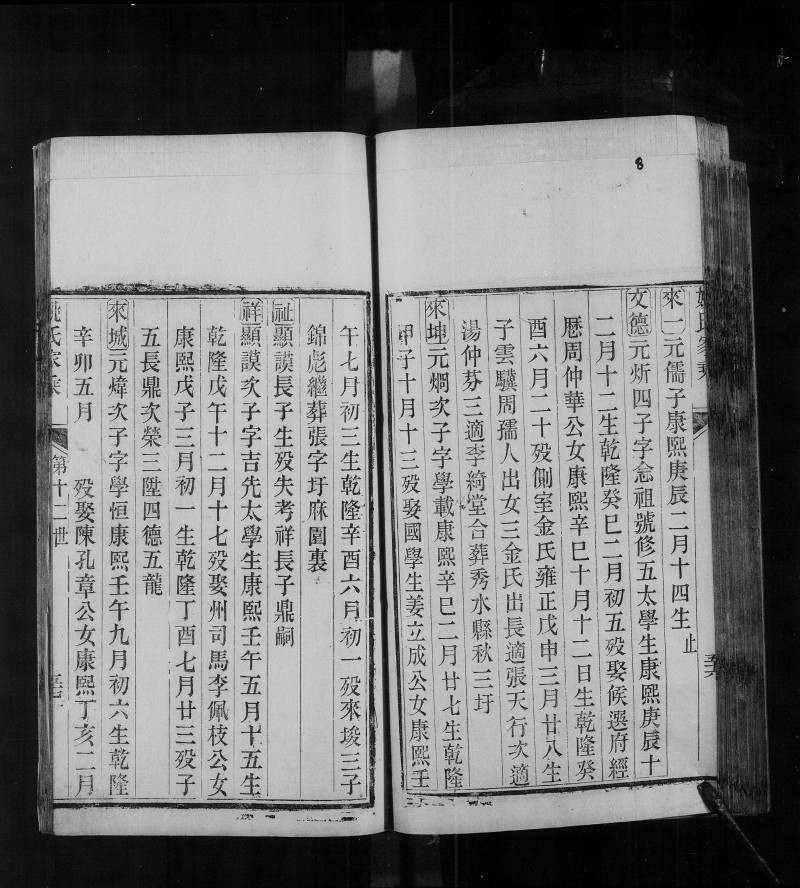 8
姚氏家乘
來一元儒子康熙庚辰二月十四生止
文德元炘四子字念祖號修五太學生康熙庚辰十
二月十二生乾隆癸巳二月初五歿娶候選府經
歷周仲華公女康熙辛巳十月十二日生乾隆癸
酉六月二十歿側室金氏雍正戊申三月廿八生
子雲驥周孺人出女三金氏出長適張天行次適
湯仲芬三適李綺堂合葬秀水縣秋三圩
來坤元烱次子字學載康熙辛巳二月廿七生乾隆
甲子十月十三歿娶國學生姜立成公女康熙壬
午七月初三生乾隆辛酉六月初一歿來埈三子
錦彪繼葬張字圩麻圍裏
祉顯謨長子生歿失考祥長子鼎嗣
祥顯謨次子字吉先太學生康熙壬午五月十五生
乾隆戊午十二月十七歿娶州司馬李佩枝公女
康熙戊子三月初一生乾隆丁酉七月廿三歿子
五長鼎次榮三陞四德五龍
來城元煒次子字學恒康熙壬午九月初六生乾隆
辛卯五月　歿娶陳孔章公女康熙丁亥二月
姚氏家乘
第十二世